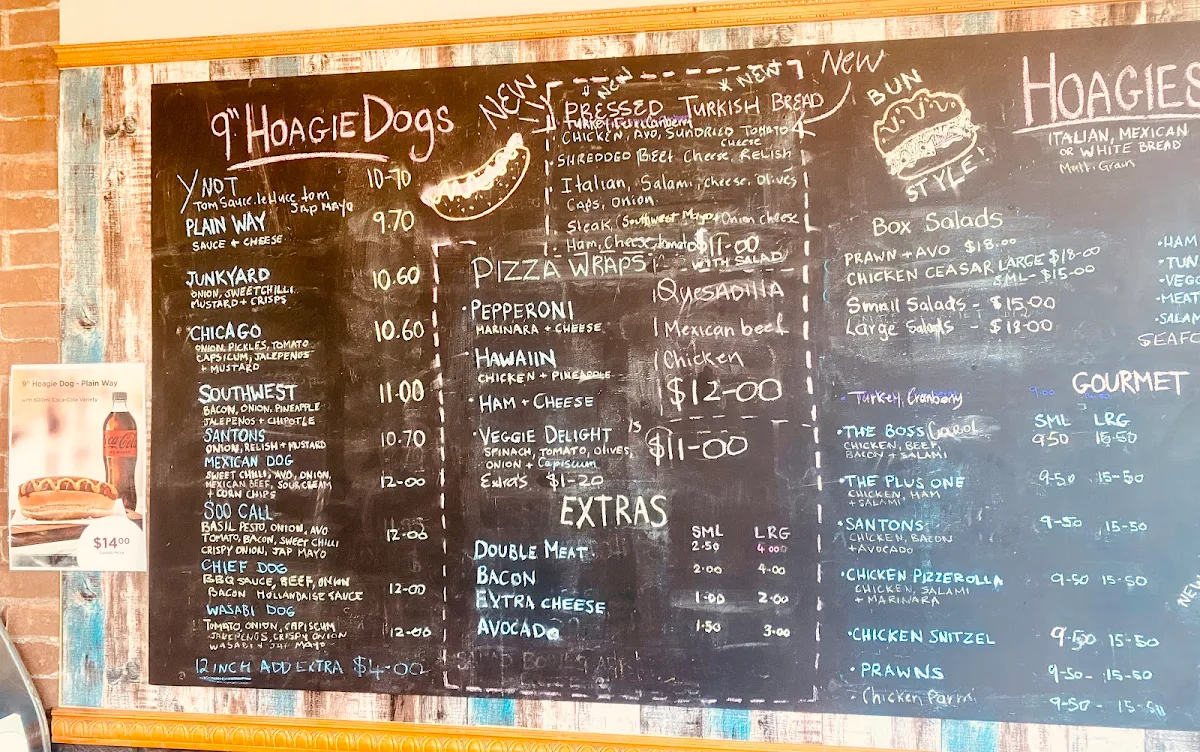 9" HOAGIE DOGS
YNOT 10-70
TOM SAUCE. LETTUCE, tom
JAP MAYO
PLAIN WAY 9.70
SAUCE + CHEESE
JUNKYARD 10.60
ONION, SWEETCHILLI,
MUSTARD + CRISPS
CHICAGO 10.60
ONION, PICKLES, TOMATO
CAPSICUM, JALEPENOS
+ MUSTARD
SOUTHWEST 11.00
BACON, ONION, PINEAPPLE
JALEPENOS + CHIPOTLE
SANTONS 10.70
ONION, RELISH + MUSTARD
MEXICAN DOG
SWEET CHILLI, AVO, ONION,
MEXICAN BEEF, SOUR CREAM 12-00
+ CORN CHIPS
SOO CALL
BASIL PESTO, ONION, AVO 12-00
TOMATO, BACON, SWEET CHILLI
CRISPY ONION, JAP MAYO
CHIEF DOG
BBQ SAUCE, BEEF, ONION 12-00
BACON HOLLANDAISE SAUCE
WASABI DOG
TOMATO, ONION, CAPISCUM 12-00
JALEPENOS, CRISPY ONION
WASABI + JAP MAYO
12 INCH ADD EXTRA $4-00
NEW
NEW
NEW
New
PRESSED TURKISH BREAD
CHICKEN, AVO, SUNDRIED TOMATO
CHEESE
SHREDDED BEEF CHEESE, RELISH
Italian, Salami, cheese, Olives
Caps, onion.
Steak, Southwest Mayo, Onion cheese
Ham, Cheese, tomato $11-00
WITH SALAD
PIZZA WRAPS
PEPPERONI
MARINARA + CHEESE
HAWAIIN
CHICKEN + PINEAPPLE
HAM + CHEESE
VEGGIE DELIGHT
SPINACH, TOMATO, OLIVES,
ONION + Capiscum
Extra's $1-20
QUESADILLA
Mexican beef
Chicken
$12-00
$11-00
EXTRAS
SML LRG
DOUBLE MEAT 2.50 4.00
BACON 2.00 4.00
EXTRA CHEESE 1.00 2.00
AVOCADO 1.50 3.00
BUN
STYLE!
Box Salads
PRAWN + AVO $18.00
CHICKEN CEASAR LARGE $18-00
SML- $15-00
Small Salads - $15.00
Large Salads - $18-00
HOAGIES
ITALIAN, MEXICAN
OR WHITE BREAD
Multi Grain
HAM
TUN
VEGG
MEAT
SALAM
SEAFO
GOURMET
Turkey, Cranberry 9.00
SML LRG
THE BOSS 9.50 15-50
CHICKEN, BEEF,
BACON + SALAMI
THE PLUS ONE 9-50 15-50
CHICKEN, HAM
+ SALAMI
SANTONS 9-50 15-50
CHICKEN, BACON
+ AVOCADO
CHICKEN PIZZEROLLA 9-50 15-50
CHICKEN, SALAMI
+ MARINARA
NEW
CHICKEN SNITZEL 9-50 15-50
PRAWNS 9-50- 15-50
Chicken Parm 9-50 - 15-50
9" Hoagie Dog - Plain Way
with 600ml Coca-Cola Variety
$14.00